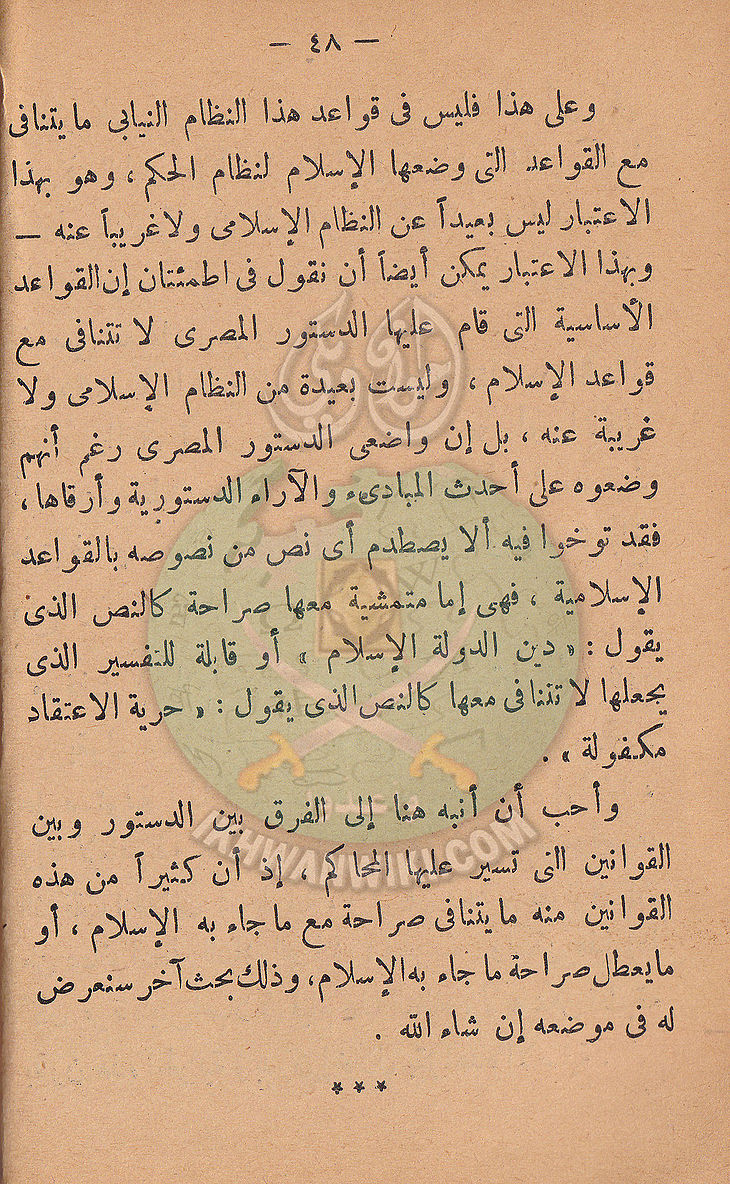 — ٤٨ —
وعلى هذا فليس فى قواعد هذا النظام النيابى ما يتنافى
مع القواعد التى وضعها الإسلام لنظام الحكم ، وهو بهذا
الاعتبار ليس بعيداً عن النظام الإسلامى ولا غريباً عنه —
وبهذا الاعتبار يمكن أيضاً أن نقول فى اطمئنان إن القواعد
الأساسية التى قام عليها الدستور المصرى لا تتنافى مع
قواعد الإسلام ، وليست بعيدة من النظام الإسلامى ولا
غريبة عنه ، بل إن واضعى الدستور المصرى رغم أنهم
وضعوه على أحدث المبادىء والآراء الدستورية وأرقاها ،
فقد توخوا فيه ألا يصطدم أى نص من نصوصه بالقواعد
الإسلامية ، فهى إما متمشية معها صراحة كالنص الذى
يقول : « دين الدولة الإسلام » أو قابلة للتفسير الذى
يجعلها لا تتنافى معها كالنص الذى يقول : « حرية الاعتقاد
مكفولة » .
وأحب أن أنبه هنا إلى الفرق بين الدستور وبين
القوانين التى تسير عليها المحاكم ، إذ أن كثيراً من هذه
القوانين منه ما يتنافى صراحة مع ما جاء به الإسلام ، أو
ما يعطل صراحة ما جاء به الإسلام ، وذلك بحث آخر سنعرض
له فى موضعه إن شاء الله .
* * *
IKHWANWIKI.COM